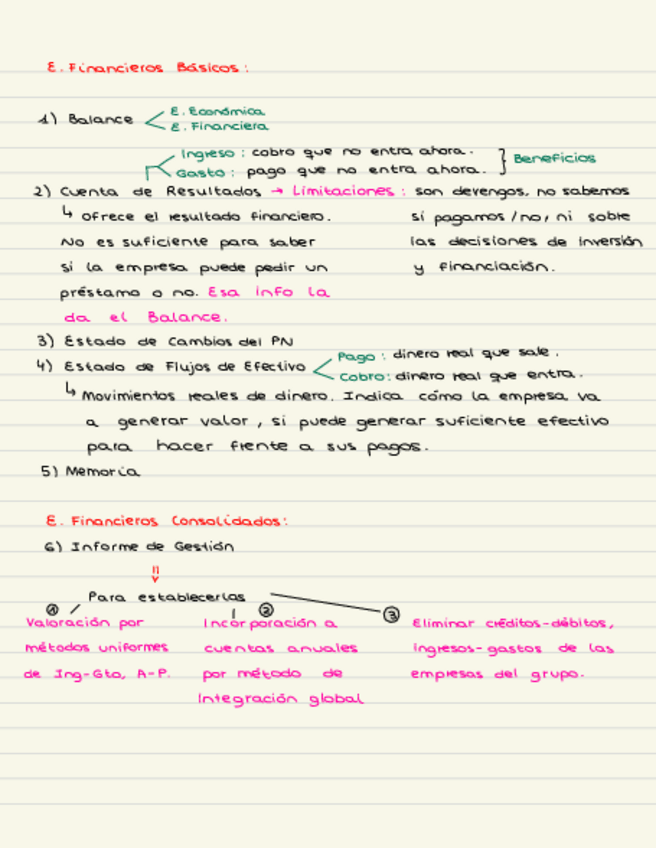 E. Financieros Básicos:
1) Balance
E. Económica
E. Financiera
Ingreso: cobro que no entra ahora.
Gasto: pago que no entra ahora.
} Beneficios
2) Cuenta de Resultados → Limitaciones: son devengos, no sabemos
↳ ofrece el resultado financiero.
si pagamos/no, ni sobre
No es suficiente para saber
las decisiones de inversión
si la empresa puede pedir un
y financiación.
préstamo o no. Esa info la
da el Balance.
3) Estado de Cambios del PN
4) Estado de Flujos de Efectivo
Pago: dinero real que sale.
Cobro: dinero real que entra.
↳ Movimientos reales de dinero. Indica cómo la empresa va
a generar valor, si puede generar suficiente efectivo
para hacer frente a sus pagos.
5) Memoria
E. Financieros Consolidados:
6) Informe de Gestión
Para establecerlos
①
Valoración por
métodos uniformes
de Ing-Gto, A-P.
②
Incorporación a
cuentas anuales
por método de
Integración global
③
Eliminar créditos-débitos,
ingresos-gastos de las
empresas del grupo.